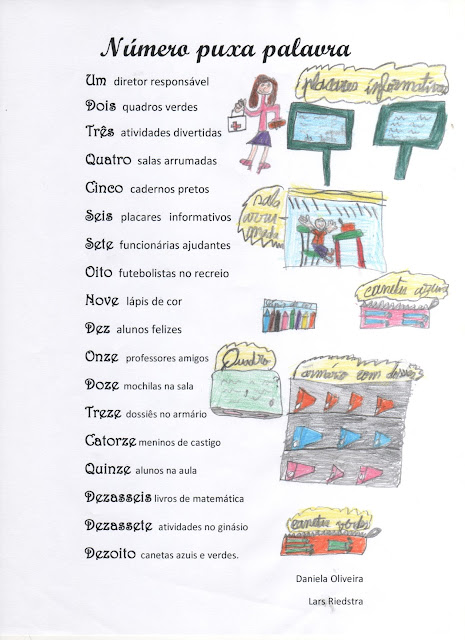 Número puxa palavra
Um diretor responsável
Dois quadros verdes
Três atividades divertidas
Quatro salas arrumadas
Cinco cadernos pretos
Seis placares informativos
Sete funcionárias ajudantes
Oito futebolistas no recreio
Nove lápis de cor
Dez alunos felizes
Onze professores amigos
Doze mochilas na sala
Treze dossiês no armário
Catorze meninos de castigo
Quinze alunos na aula
Dezasseis livros de matemática
Dezassete atividades no ginásio
Dezoito canetas azuis e verdes.
placares informativos
sala
arru-
mada
Quadro
armário com dossiês
Daniela Oliveira
Lars Riedstra